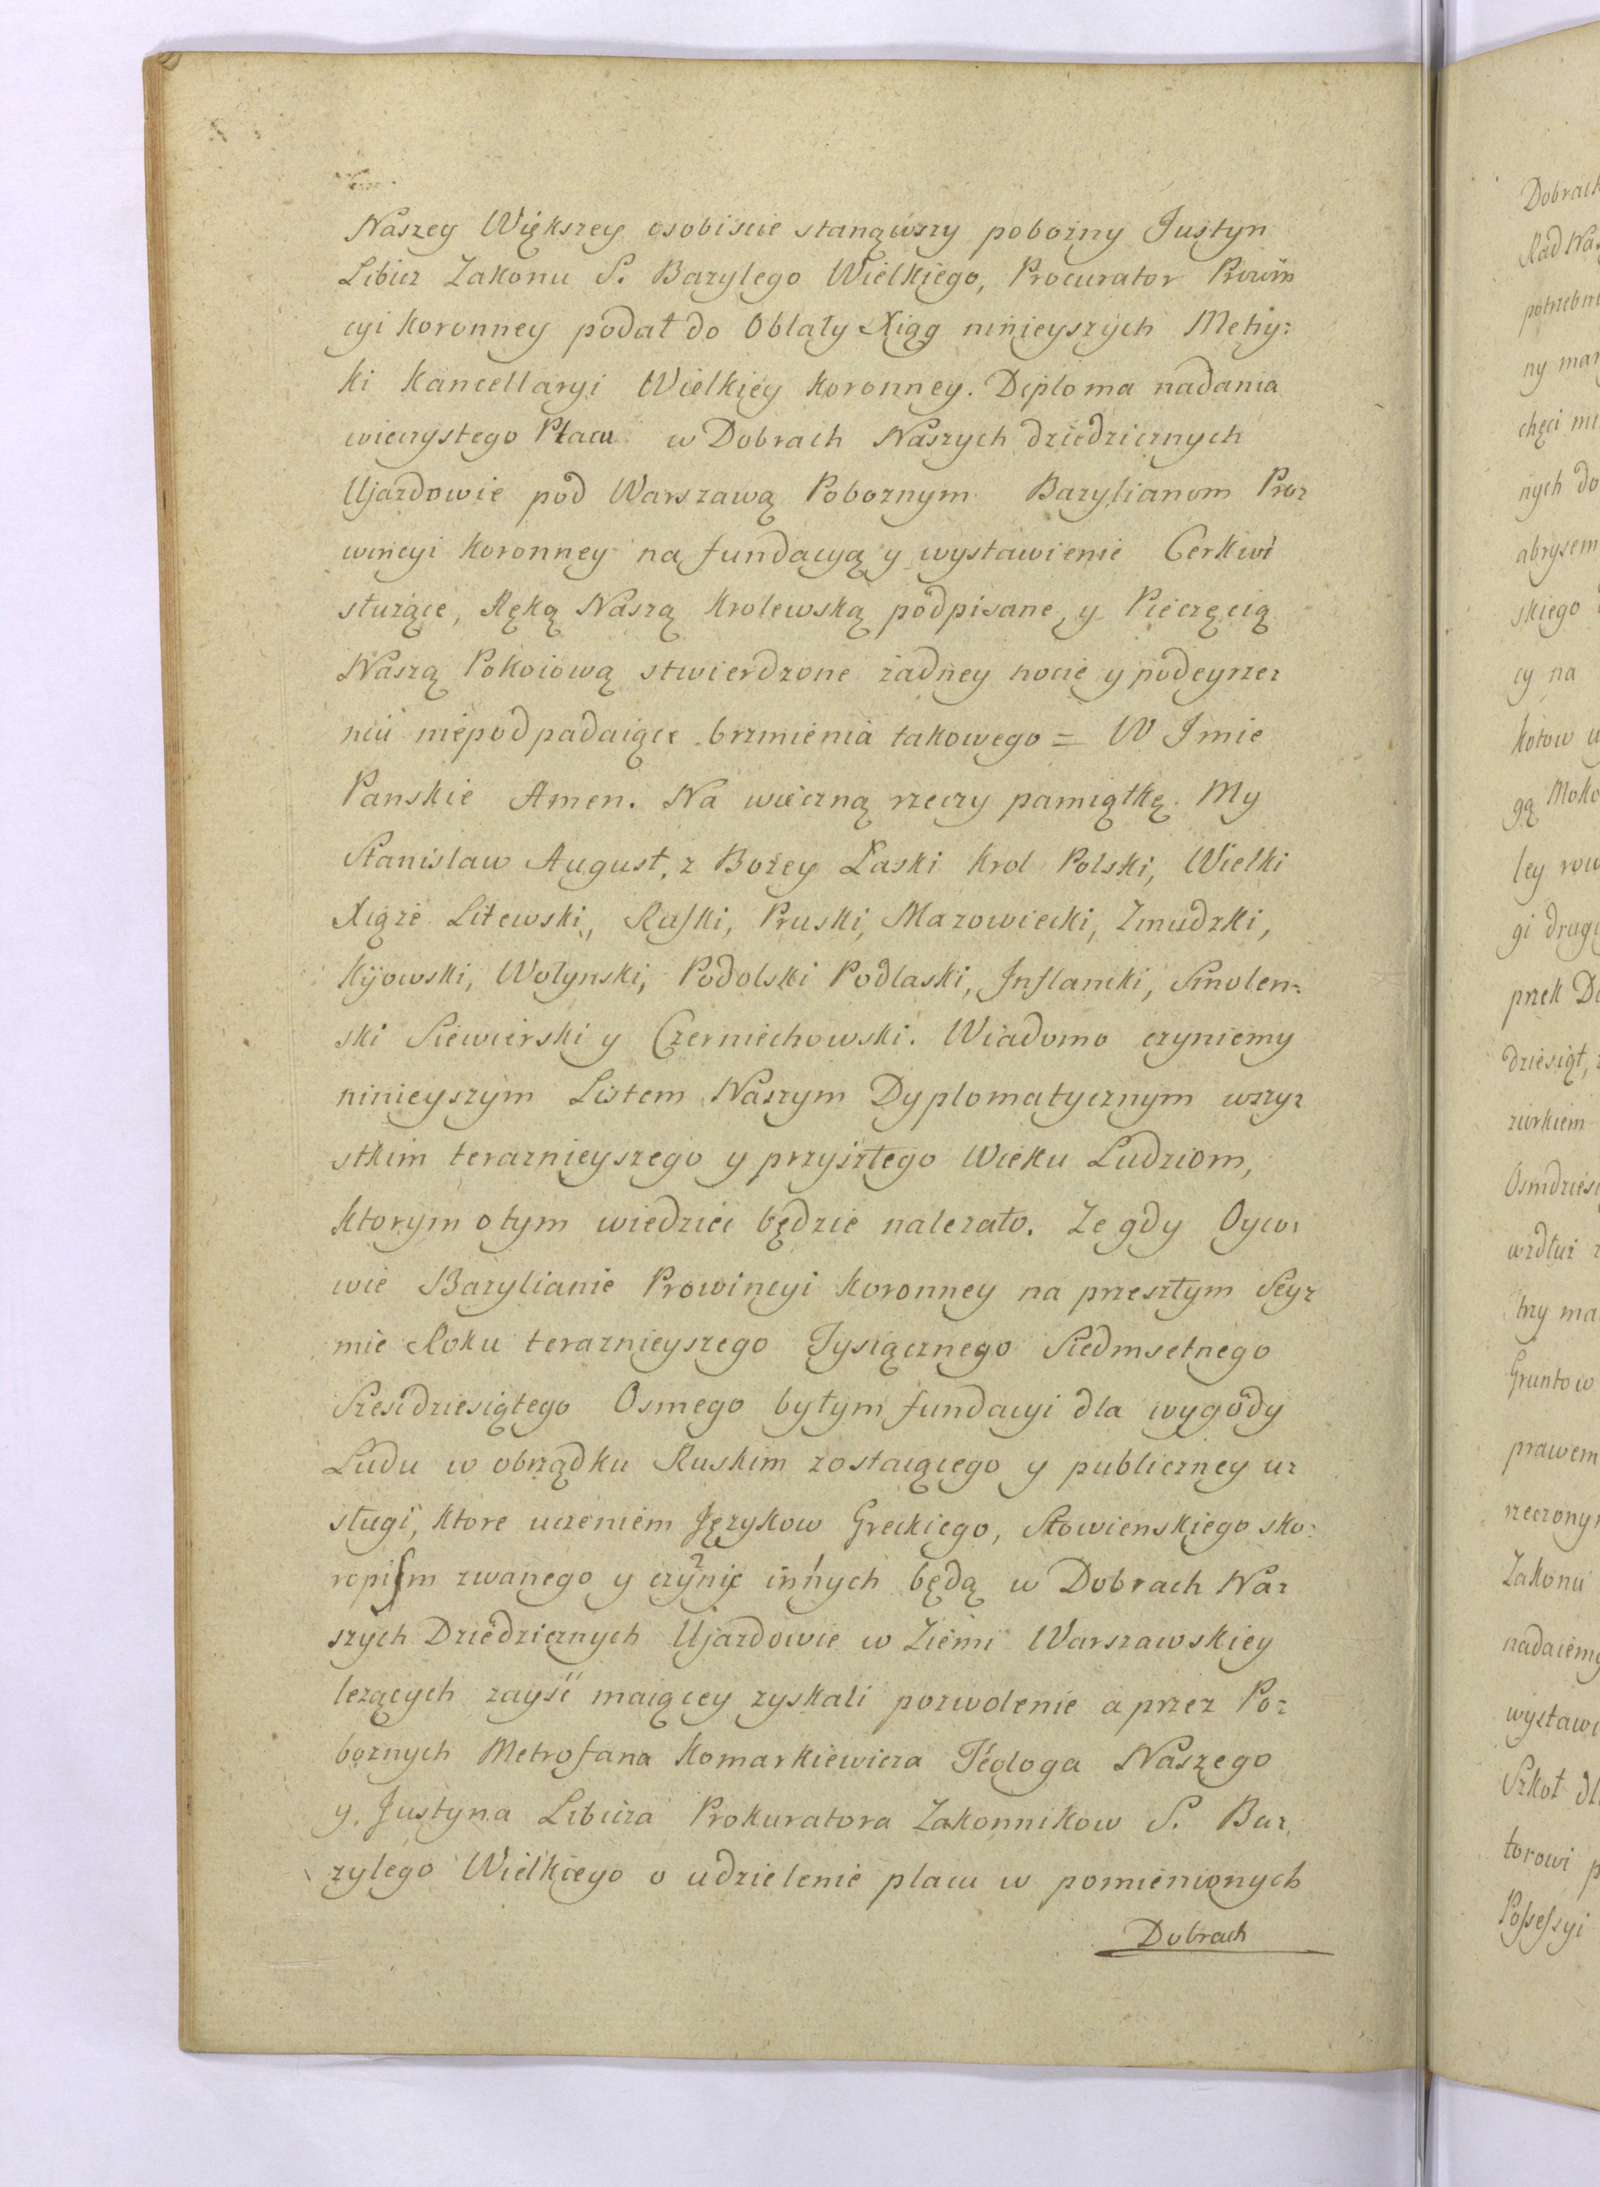 Naszey Większey osobiscie stanąwszy pobożny Justyn
Libicz Zakonu S. Bazylego Wielkiego, Procurator Prowin
cyi Koronney podał do Oblaty Xiąg ninieyszych Metry:
ki Kancellaryi Wielkiey Koronney. Diploma nadania
wieczystego Placu w Dobrach Naszych dziedzicznych
Ujazdowie pod Warszawą Pobożnym Bazylianom Pro:
wincyi Koronney na fundacyą y wystawienie Cerkwi
służące, Ręką Naszą Krolewską podpisane, y Pieczęcią
Naszą Pokoiową stwierdzone żadney nocie y podeyrze:
niu niepodpadaiące brzmienia takowego = W Jmie
Panskie Amen. Na wieczną rzeczy pamiątkę. My
Stanislaw August, z Bożey Łaski Krol Polski, Wielki
Xiąże Litewski, Ruski, Pruski, Mazowiecki, Zmudzki,
Kijowski, Wolynski, Podolski Podlaski, Jnflancki, Smolen:
ski Siewierski y Czerniechowski. Wiadomo czyniemy
ninieyszym Listem Naszym Dyplomatycznym wszy:
stkim terazniejszego y przyszłego Wieku Ludziom,
ktorym o tym wiedziec będzie nalezało. Ze gdy Oyco:
wie Bazylianie Prowincyi Koronney na przeszłym Sey:
mie Roku terazniejszego Tysiącznego Siedmsetnego
Szescdziesiątego Osmego byłym fundacyi dla wygody
Ludu w obrządku Ruskim zostaiącego y publiczney u:
sługi, ktore uczeniem Językow Greckiego, Słowienskiego sko:
ropism zwanego y czynić innych będą w Dobrach Na:
szych Dziedzicznych Ujazdowie w Ziemi Warszawskiey
lezących zayść maiącey zyskali pozwolenie a przez Po:
bożnych Metrofana Komarkiewicza Teologa Naszego
y Justyna Libicza Prokuratora Zakonnikow S. Ba:
zylego Wielkiego o udzielenie placu w pomienionych
Dobrach
Dobrach
potrzebn
ny ma
chęci
nych do
abrysem
skiego
cy na
kotow
gą Moko
ley row
gi drug
dziesiąt,
Osmdziesi
wzdłuż
Gruntow
prawem
rzeczony
Zakonu
nadaiemy
wystawi
Szkoł dl
torowi
Possessyi